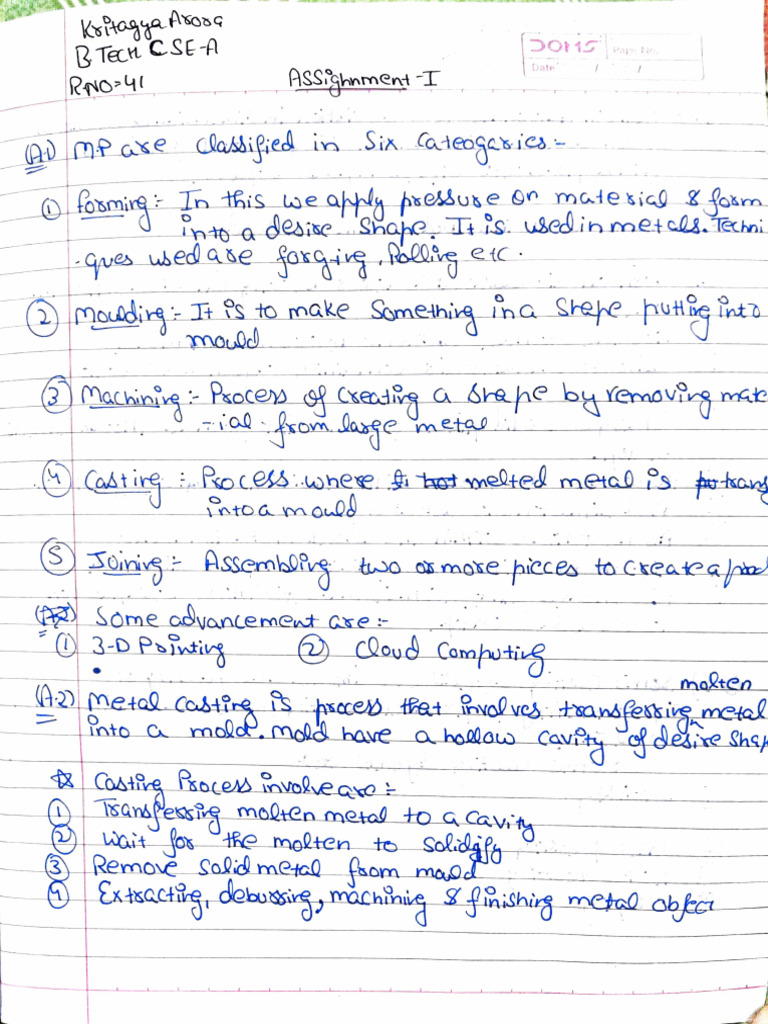 Kritagya Arora
B TECH CSE-A
R.NO=41
ASSighnment-I
DOMS
Page No.
Date / /
(A.1) MP are classified in Six Cateogaries:-
① forming:- In this we apply pressure on material & form
into a desire shape. It is used in metals. Techni
-ques used are forging, Rolling etc.
② Moulding:- It is to make something in a shape putting into
mould
③ Machining:- Process of creating a shape by removing mate
-ial from large metal
④ Casting:- Process where melted metal is trans
into a mould
⑤ Joining:- Assembling two or more pieces to create a prod
(A.2) Some advancement are:-
① 3-D Printing ② Cloud Computing
molten
(A.2) Metal casting is process that involves transferring metal
into a mold. mold have a hollow cavity of desire shap
☆ Casting Process involve are:-
① Transferring molten metal to a cavity
② Wait for the molten to solidify
③ Remove solid metal from mould
④ Extracting, deburring, machinig & finishing metal object